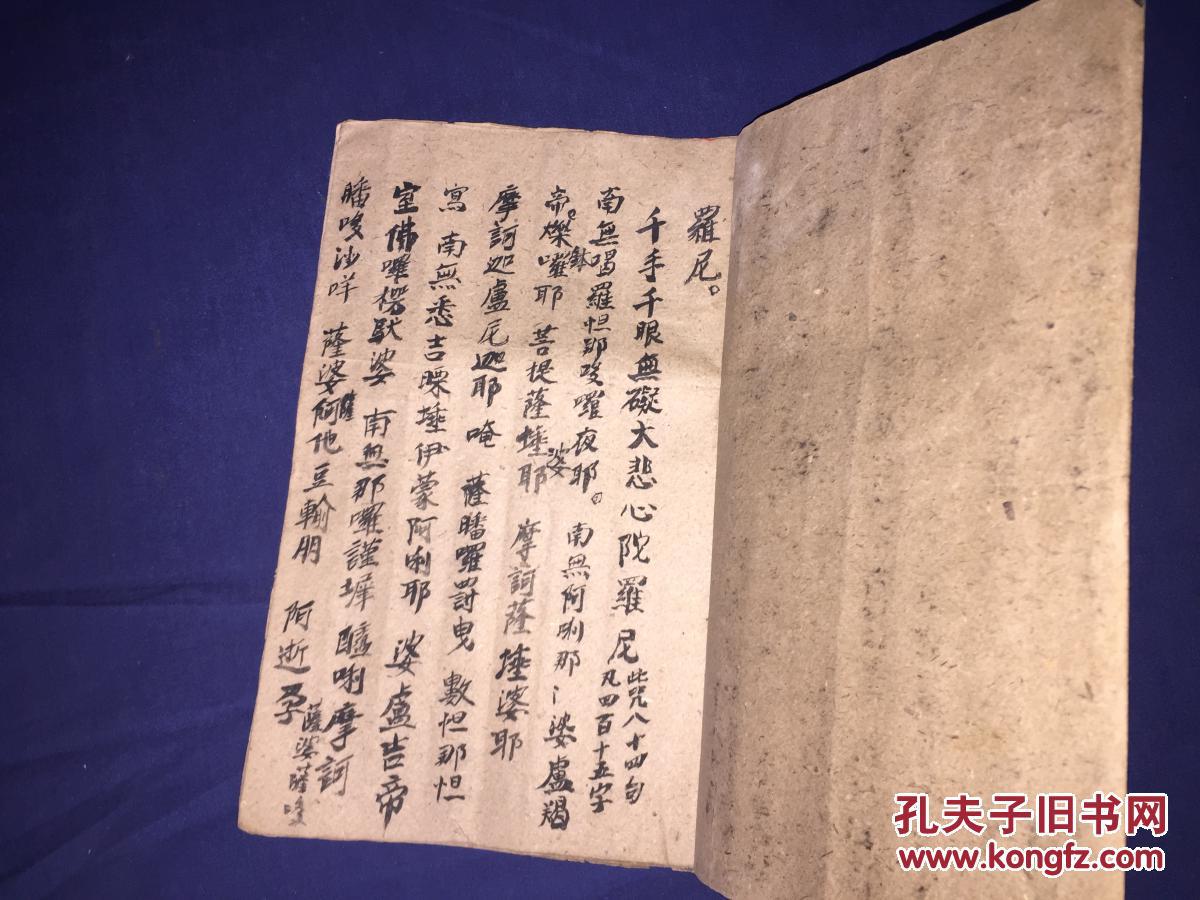 羅尼。
千手千眼無礙大悲心陀羅尼 此咒八十四句
凡四百十五字
南無喝羅怛那哆囉夜耶 南無阿唎那 婆盧羯
帝爍鉢囉耶 菩提薩埵婆耶 摩訶薩埵婆耶
摩訶迦盧尼迦耶 唵 薩皤囉罰曳 數怛那怛
寫 南無悉吉㗚埵伊蒙阿唎耶 婆盧吉帝
室佛囉楞馱婆 南無那囉謹墀 醯唎摩訶
皤哆沙咩 薩婆薩阿他豆輸朋 阿逝孕
薩婆薩哆
孔夫子旧书网
www.kongfz.com